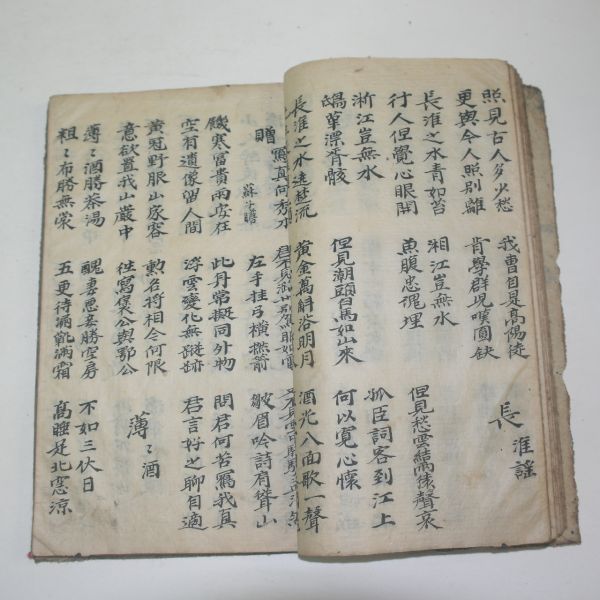 照見古人多少愁
更與今人照別離
我曹自是高陽徒
肯學群兒嘆圓缺
長淮謠
長淮之水青如苔
行人但覺心眼開
湘江豈無水
魚腹忠魂埋
但見愁雲結雨猿聲哀
浙江豈無水
鴟革漂胥骸
但見潮頭白馬如山來
孤臣詞客到江上
何以寬心懷
長淮之水遶楚流
黃金萬斛浴明月
酒光八面歌一聲
贈寫真何秀水
蘇子瞻
左手挂弓橫撚箭
皺眉吟詩肩聳山
饑寒富貴兩安在
空有遺像留人間
此身常擬同外物
浮雲變化無蹤跡
問君何苦寫我真
君言好之聊自適
黃冠野服山家容
意欲置我山巖中
勳名將相今何限
往寫褒公與鄂公
薄〻酒
薄〻酒勝茶湯
粗〻布勝無裳
醜妻惡妾勝空房
五更待漏靴滿霜
不如三伏日
高睡足北窓涼